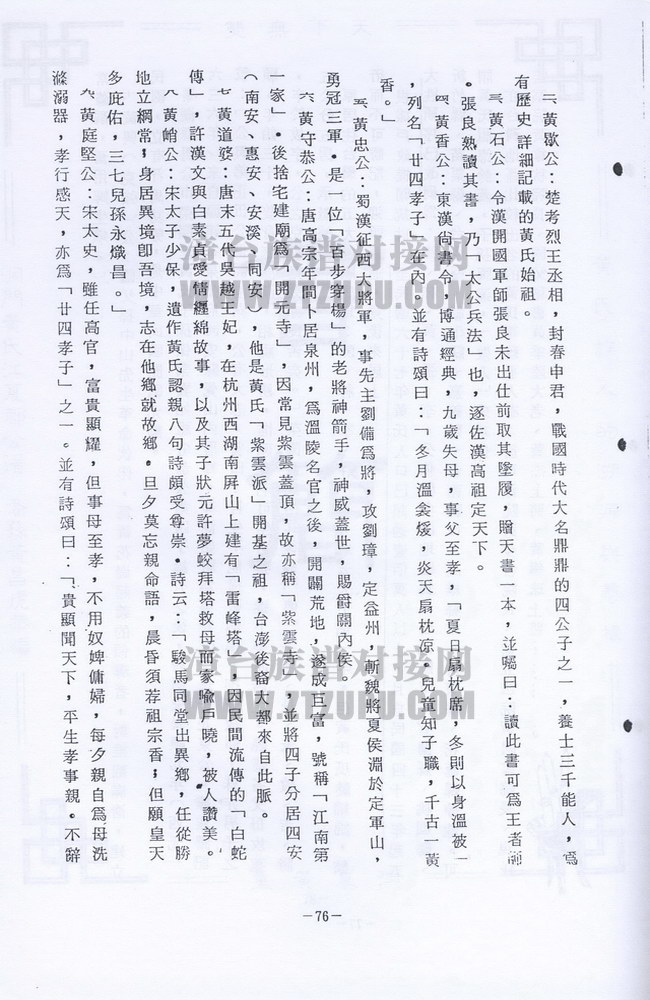 二、黃歇公：楚考烈王丞相，封春申君，戰國時代大名鼎鼎的四公子之一，養士三千能人，爲
有歷史詳細記載的黃氏始祖。
三、黃石公：令漢開國軍師張良未出仕前取其墜履，贈天書一本，並囑曰：讀此書可爲王者師
。張良熟讀其書，乃「太公兵法」也，逐佐漢高祖定天下。
四、黃香公：東漢尙書令，博通經典，九歲失母，事父至孝，「夏日扇枕席，冬則以身溫被」
，列名「廿四孝子」在內。並有詩頌曰：「冬月溫衾煖，炎天扇枕凉。兒童知子職，千古一黃
香。」
五、黃忠公：蜀漢征西大將軍，事先主劉備爲將，攻劉璋，定益州，斬魏將夏侯淵於定軍山，
勇冠三軍。是一位「百步穿楊」的老將神箭手，神威蓋世，賜爵關內侯。
六、黃守恭公：唐高宗年間卜居泉州，爲溫陵名官之後，開闢荒地，遂成巨富，號稱「江南第
一家」。後捨宅建廟爲「開元寺」，因常見紫雲蓋頂，故亦稱「紫雲寺」，並將四子分居四安
（南安、惠安、安溪、同安），他是黃氏「紫雲派」開基之祖，台澎後裔大都來自此脈。
七、黃道婆：唐末五代吳越王妃，在杭州西湖南屏山上建有「雷峰塔」，因民間流傳的「白蛇
傳」，許漢文與白素貞愛情纏綿故事，以及其子狀元許夢蛟拜塔救母而家喩戶曉，被人讚美。
八、黃峭公：宋太子少保，遺作黃氏認親八句詩頗受尊崇。詩云：「駿馬同堂出異鄉，任從勝
地立綱常，身居異境卽吾境，志在他鄉就故鄉。旦夕莫忘親命語，晨昏須荐祖宗香；但願皇天
多庇佑，三七兒孫永熾昌。」
九、黃庭堅公：宋太史，雖任高官，富貴顯耀，但事母至孝，不用奴婢傭婦，每夕親自爲母洗
滌溺器，孝行感天，亦爲「廿四孝子」之一。並有詩頌曰：「貴顯聞天下，平生孝事親。不辭
—76—
漳台族谱对接网
WWW.21ZUPU.COM
漳台族谱对接网
WWW.21ZUPU.COM